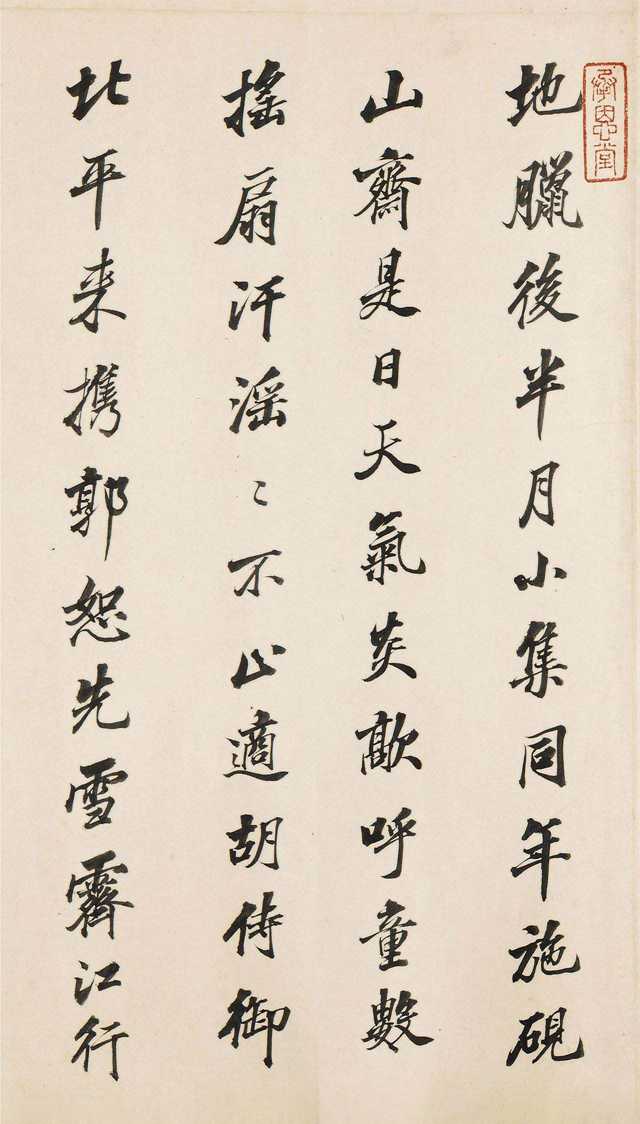 承恩堂
地臘後半月小集同年施硯
山齋是日天氣炎歊呼童數
搖扇汗滛〻不止適胡侍御
北平来攜郭恕先雪霽江行